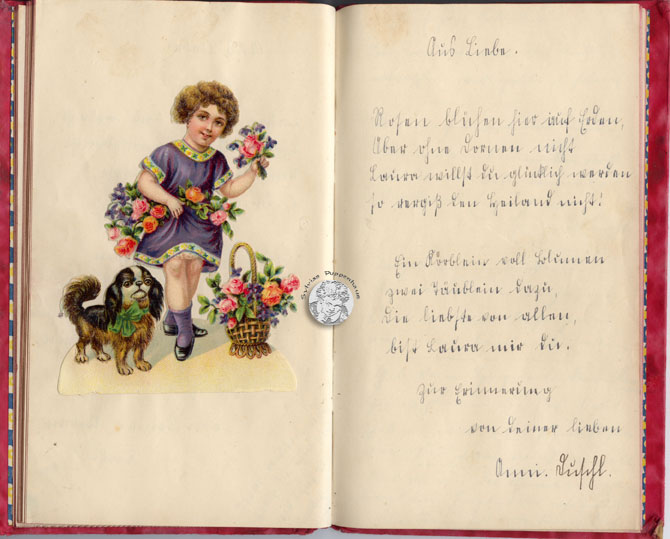 Aus Liebe.
Rosen blühen hier auf Erden,
Aber ohne Dornen nicht
Laura willst du glücklich werden
so vergiß den Heiland nicht!
Ein Körblein voll Blumen
zwei Täublein dazu,
Die liebste von allen,
bist Laura mir du.
Zur Erinnerung
von deiner lieben
Anni. Duschl.
Sylvias Puppenheim